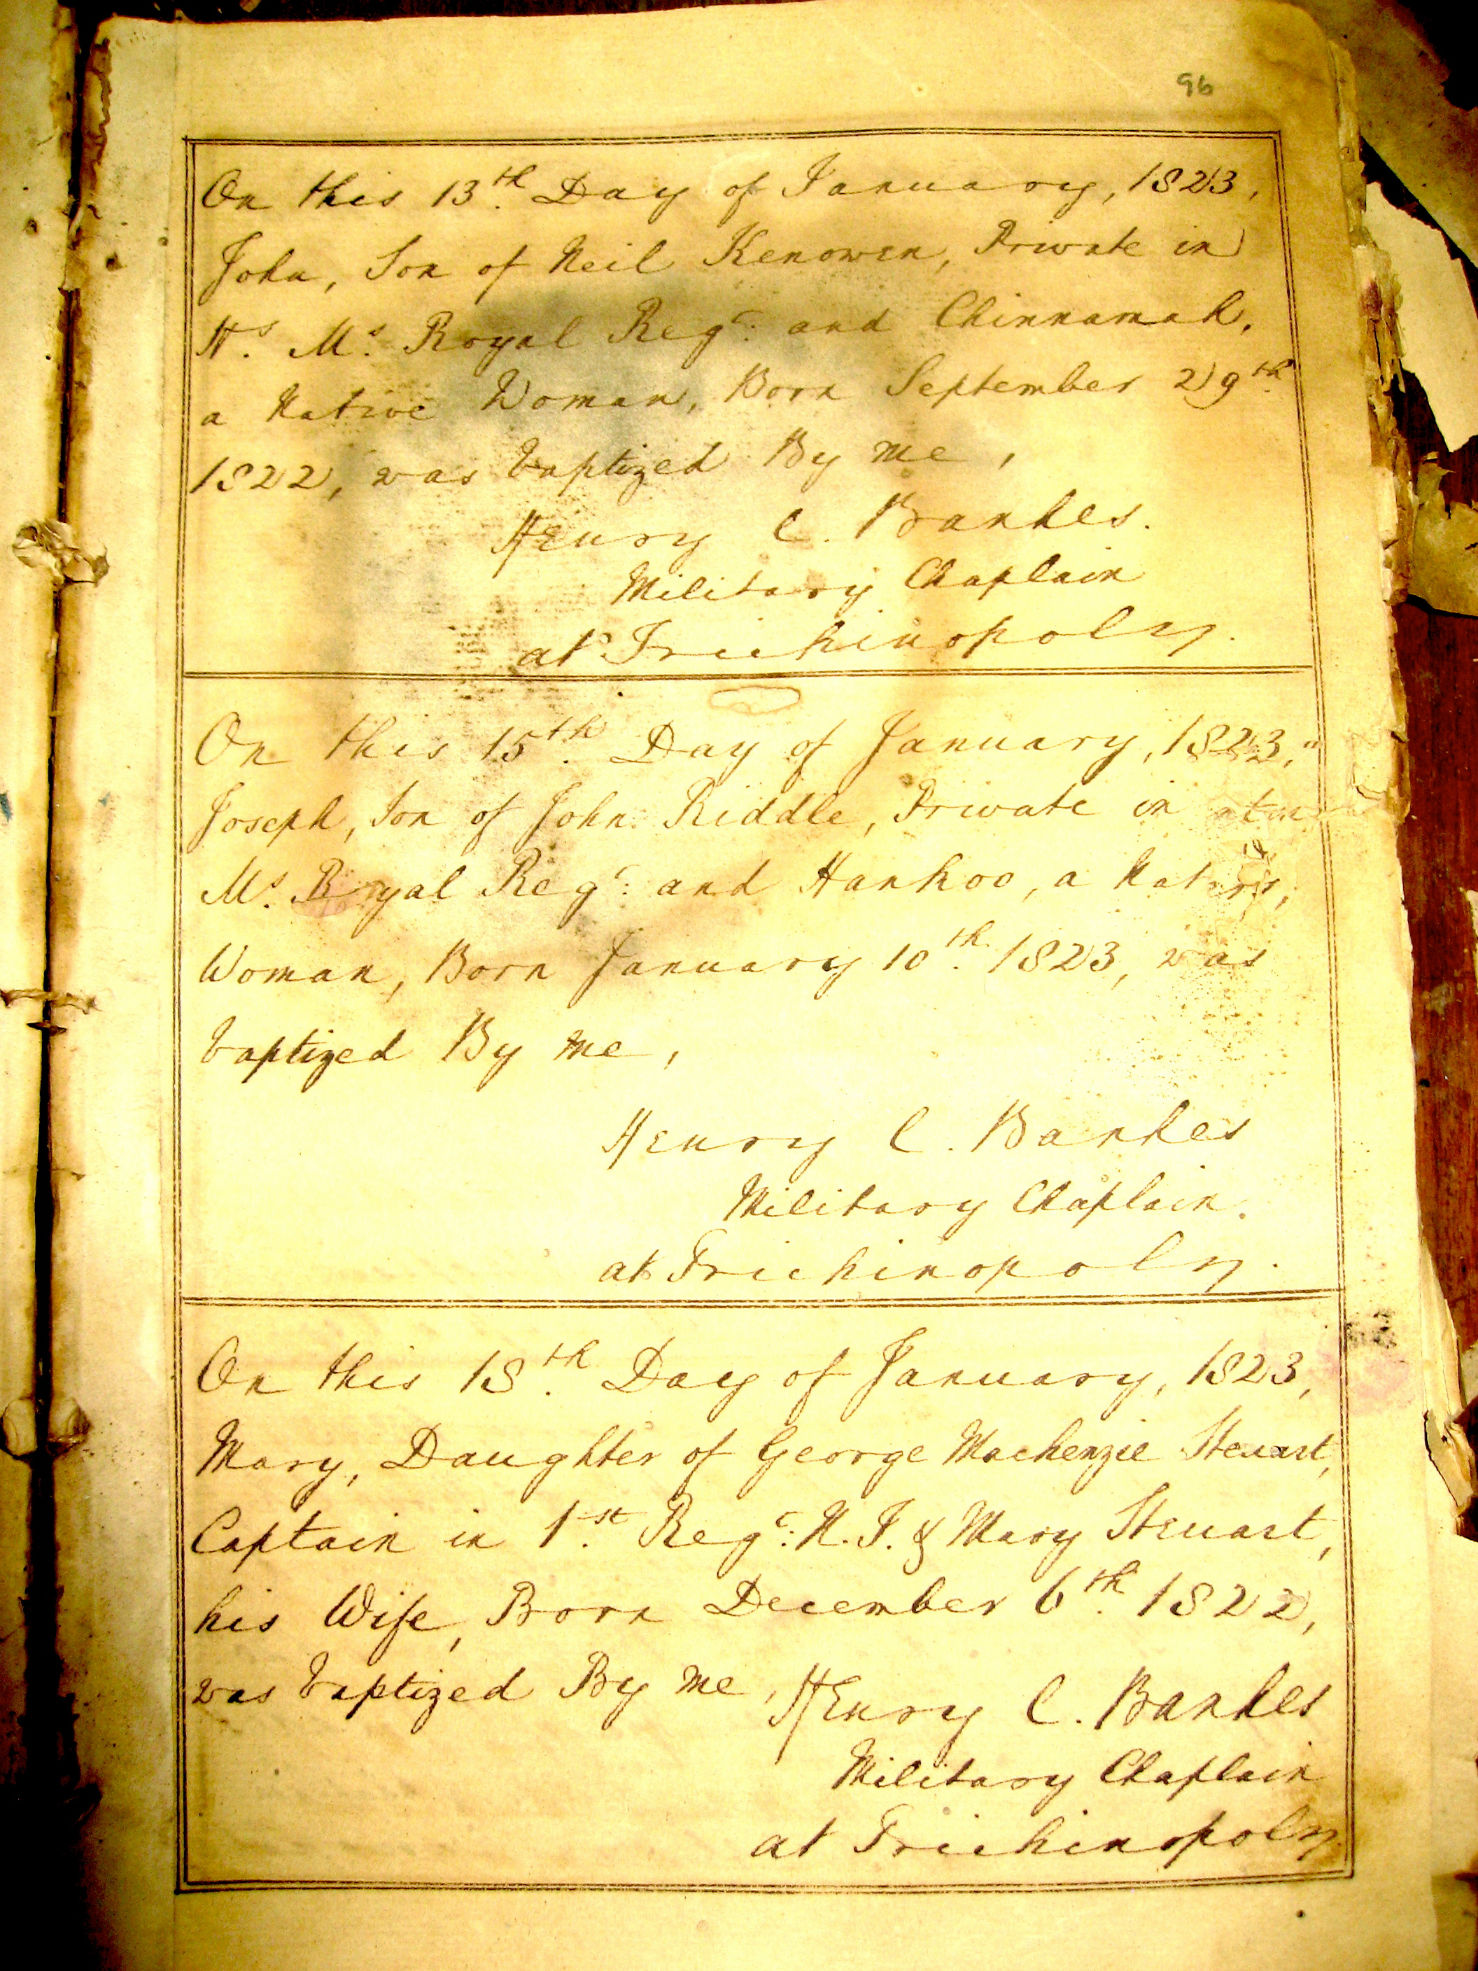 96
On this 13th. Day of January, 1823,
John, Son of Neil Kenowen, Private in
H.s M.s Royal Regt: and Chinnamah,
a Native Woman, Born September 29th.
1822, was baptized By me,
Henry C. Bankes.
Military Chaplain
at Trichinopoly.
On this 15th. Day of January, 1823,"
Joseph, Son of John Riddle, Private in
M.s Royal Regt: and Hankoo, a Native,
Woman, Born January 10th. 1823, was
baptized By me,
Henry C. Bankes
Military Chaplain.
at Trichinopoly.
On this 18th. Day of January, 1823,
Mary, Daughter of George Mackenzie Steuart,
Captain in 1st. Regt: N. I. & Mary Steuart,
his Wife, Born December 6th. 1822,
was baptized By me, Henry C. Bankes
Military Chaplain
at Trichinopoly.